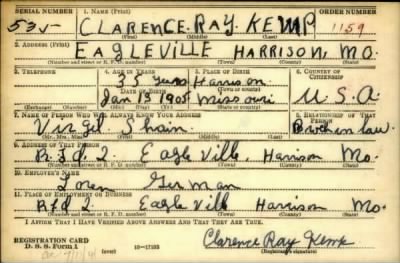 SERIAL NUMBER 1. NAME (Print) ORDER NUMBER
535 CLARENCE. RAY. KEMP 1159
(First) (Middle) (Last)
2. ADDRESS (Print)
EAGLEVILLE HARRISON, MO.
(Number and street or R. F. D. number) (Town) (County) (State)
3. TELEPHONE 4. AGE IN YEARS 5. PLACE OF BIRTH 6. COUNTRY OF CITIZENSHIP
35 years Harrison
DATE OF BIRTH (Town or county)
Jan 19 1905 Missouri U.S.A.
(Exchange) (Number) (Mo.) (Day) (Yr.) (State or country)
7. NAME OF PERSON WHO WILL ALWAYS KNOW YOUR ADDRESS 8. RELATIONSHIP OF THAT PERSON
Virgil Shain Brother in law.
(Mr., Mrs., Miss) (First) (Middle) (Last)
9. ADDRESS OF THAT PERSON
R.fd 2. Eagleville, Harrison Mo.
(Number and street or R. F. D. number) (Town) (County) (State)
10. EMPLOYER'S NAME
Loren German
11. PLACE OF EMPLOYMENT OR BUSINESS
Rfd 2 Eagleville Harrison Mo.
(Number and street or R. F. D. number) (Town) (County) (State)
I AFFIRM THAT I HAVE VERIFIED ABOVE ANSWERS AND THAT THEY ARE TRUE.
REGISTRATION CARD
D. S. S. Form 1 16-17105 Clarence Ray Kemp
(Registrant's signature)